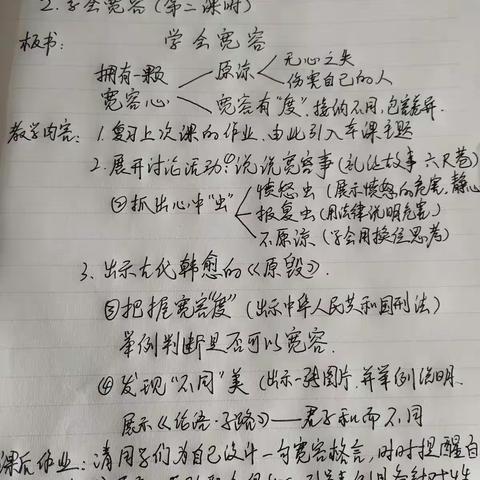 2. 学会宽容(第二课时)
板书: 学会宽容
拥有一颗宽容心
原谅
无心之失
伤害自己的人
宽容有"度",接纳不同,包容差异.
教学内容: 1. 复习上次课的作业、由此引入本课主题
2. 展开讨论活动: ①说说宽容事(礼让故事 六尺巷)
②抓出心中"虫"
愤怒虫(展示愤怒的危害,静心
报复虫(用法律说明危害)
不原谅(学会用换位思考)
3. 出示古代韩愈的《原毁》.
③把握宽容"度"(出示中华人民共和国刑法)
举例判断是否可以宽容.
④发现"不同"美(出示一张图片,并举例说明.
展示《论语·子路》——君子和而不同
课后作业: 请同学们为自己设计一句宽容格言,时时提醒自